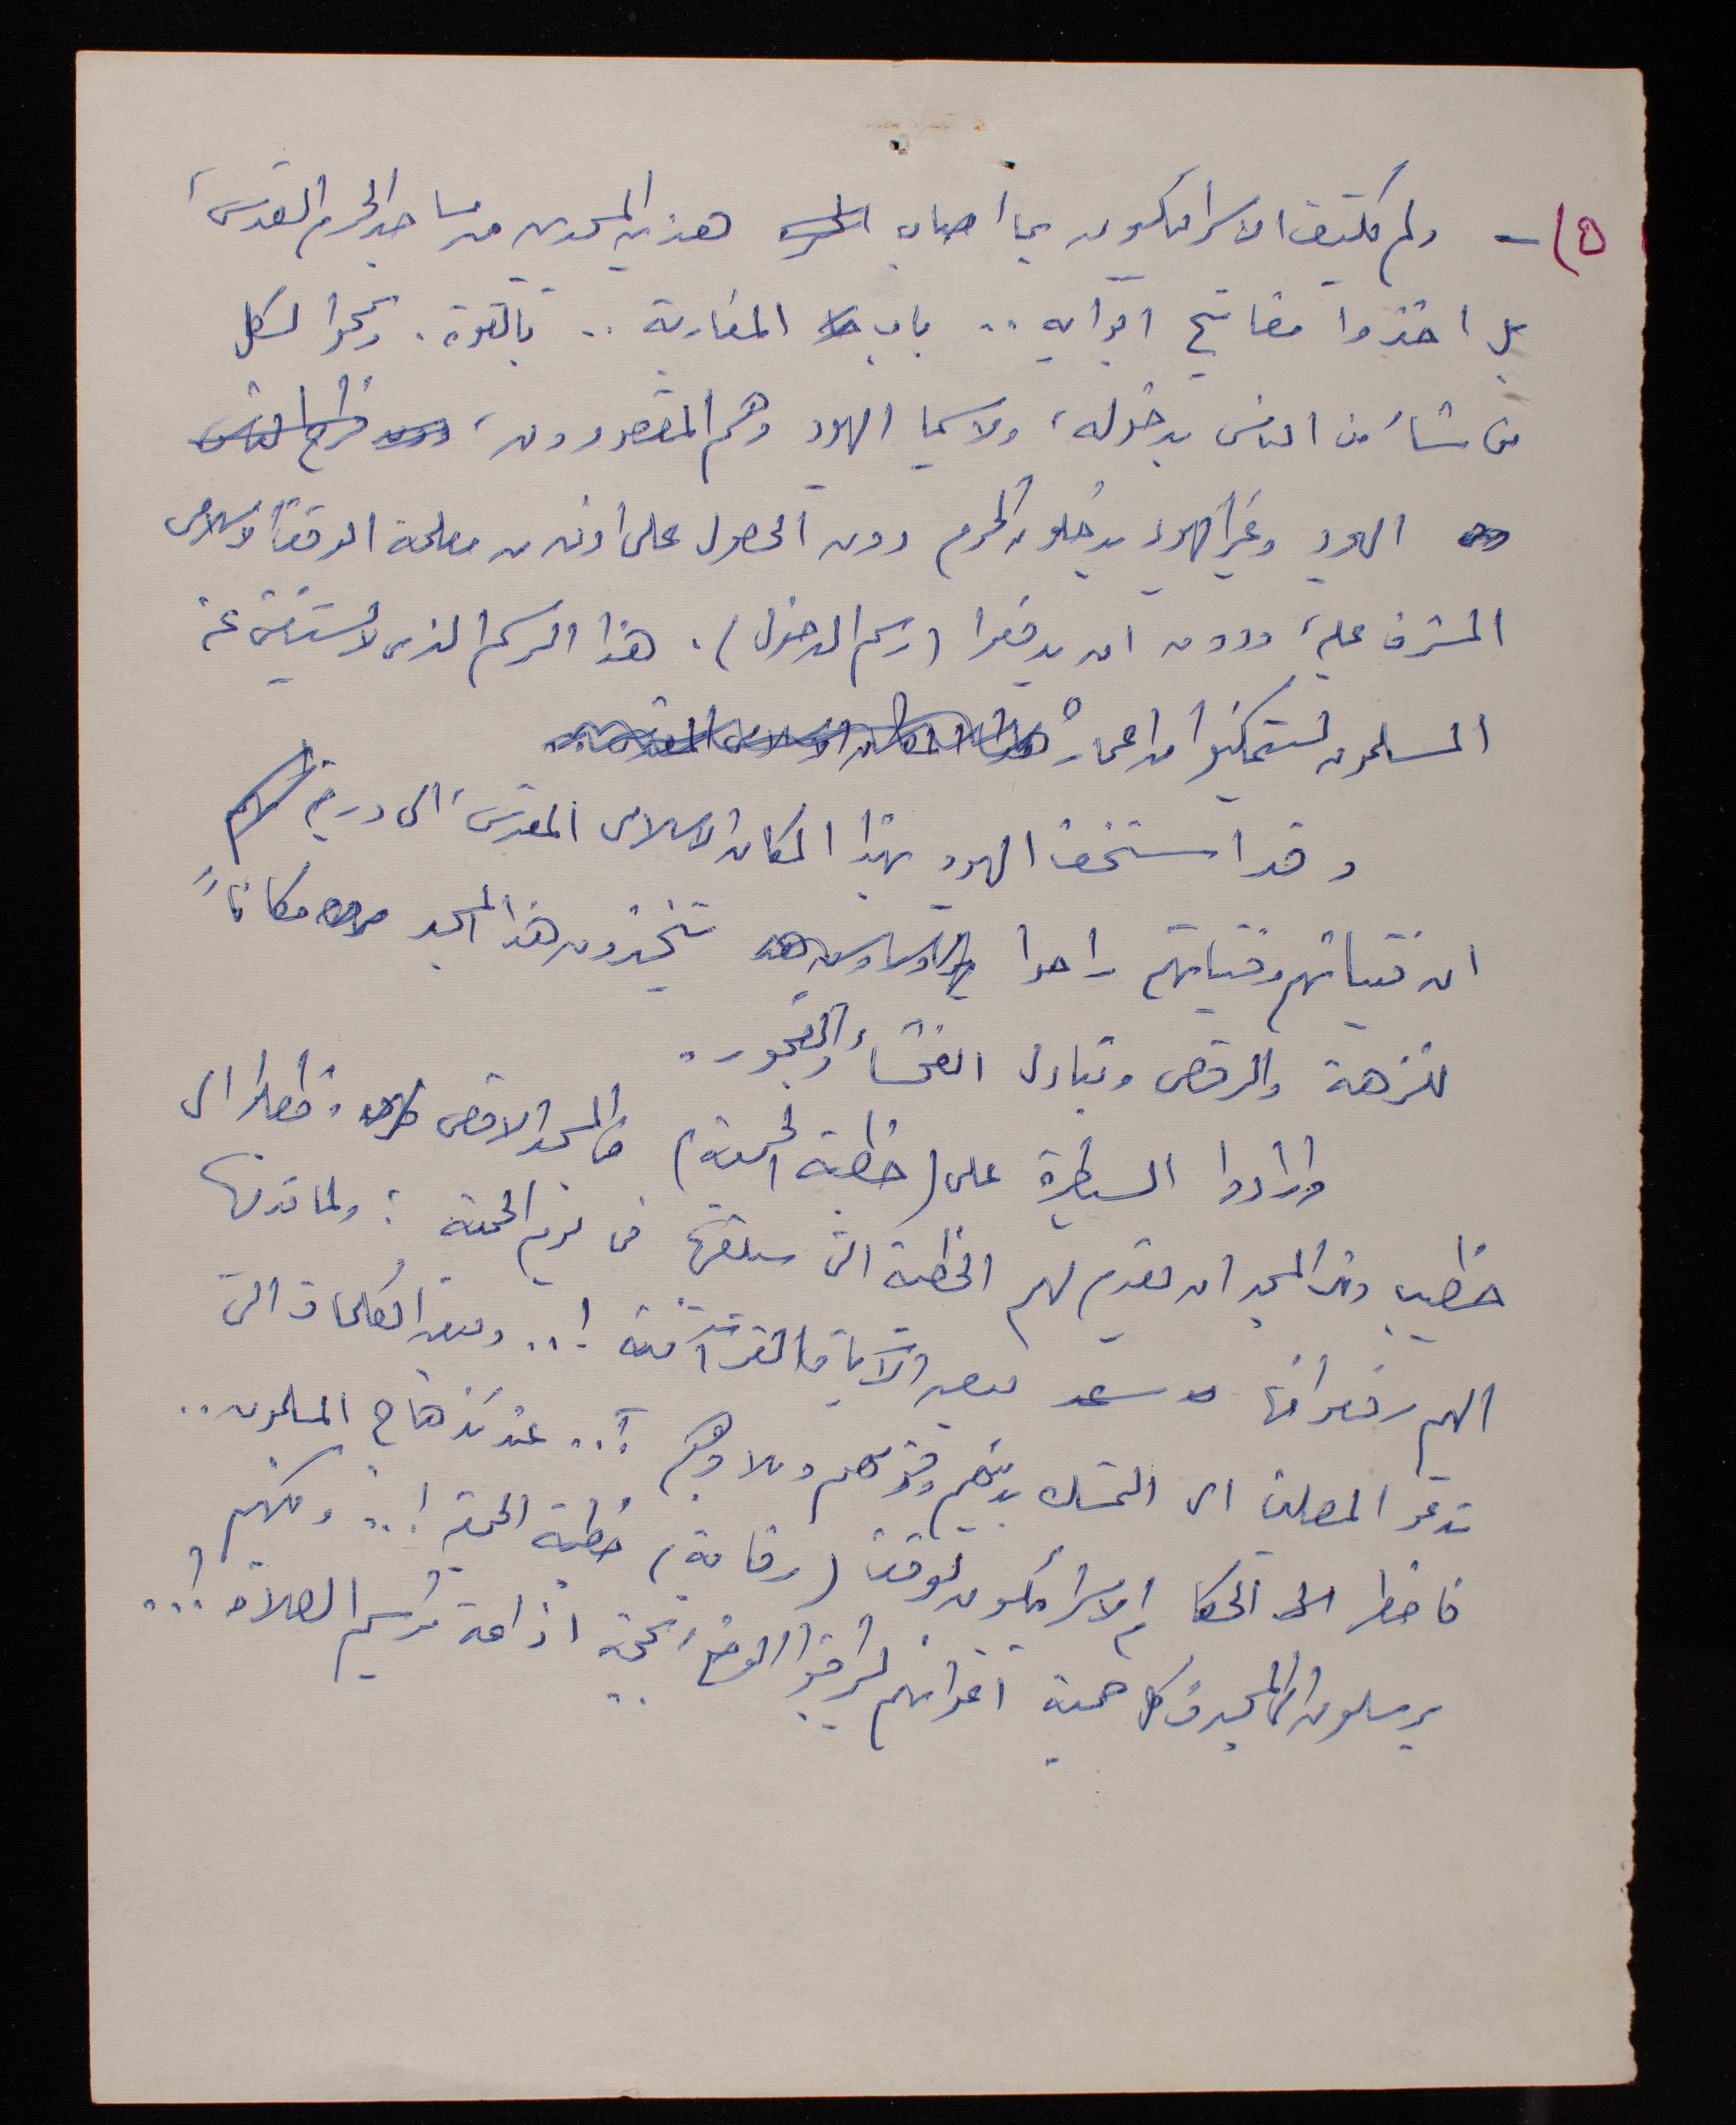 ٥) - ولم يكتف الاسرائيليون بما اصاب هذين المسجدين من مساجد الحرم القدسي،
بل اخذوا مفاتيح ابوابه .. باب المغاربة .. بالقوة. وسمحوا لكل
من شاء من الناس بدخوله، ولا سيما اليهود وهم المقصودون،
اليهود وغير اليهود يدخلون الحرم دون الحصول على اذن من مصلحة الوقف الاسلامي
المشرف عليه، ودون ان يدفعوا (رسم الدخول). هذا الرسم الذي لا يستغني عنه
المسلمون ليتمكنوا من اعماره
وقد استخف اليهود بهذا المكان الاسلامي المقدس، الى درجة
ان فتيانهم وفتياتهم راحوا يتخذون هذا المسجد مكاناً
للنزهة والرقص وتبادل الفحشاء والفجور.
وارادوا السيطرة على (خطبة الجمعة) في المسجد الاقصى. فطلبوا الى
خطيب هذا المسجد ان يقدم لهم الخطبة التي سيلقيها في يوم الجمعة؛ ولما قدمها
اليهم رفعوا منها بعض الآيات القرآنية !.. وبعض الكلمات التي
تدعو المصلين الى التمسك بدينهم وقومهم وبلادهم !.. عندئذ هاج المسلمون..
فاضطر الحكام الاسرائيليون لوقف (رقابة) خطبة الجمعة !.. ولكنهم
يرسلون الى المسجد في كل جمعة اعوانهم ليراقبوا الوضع، بحجة اذاعة مراسيم الصلاة !...